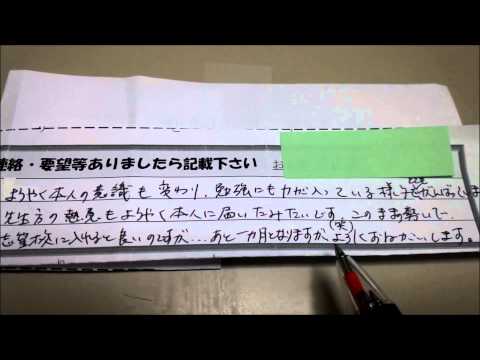 連絡・要望等ありましたら記載下さい お
ようやく本人の意識も変わり、勉強にも力が入っている様子
先生方の熱意もようやく本人に届いたみたいです。このまま
志望校に入れると良いのですが…あと一カ月となりますが、よろしくおねがいします。
(笑)